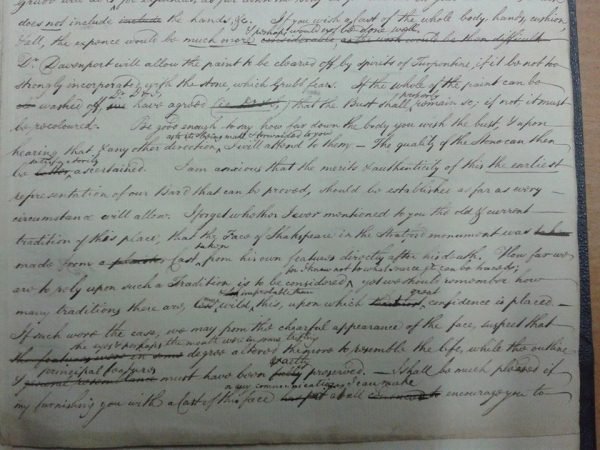 does not include the hands, &c. If you wish a cast of the whole body, hands, cushion
& all, the expence would be much more considerable as the work would be then difficult
& perhaps would not be done well.
Dr. Davenport will allow the paint to be cleared off by spirits of Turpentine, if it be not too
strongly incorporated with the stone, which Grubb fears. If the whole of the paint can be
washed off, have agreed that the Bust shall remain so; if not it must
be recoloured. Be good enough to say how far down the body you wish the bust, & upon
hearing that, & any other direction, I will attend to them. — The quality of the Stone can then
be better ascertained. I am anxious that the merits & authenticity of this the earliest
representation of our Bard that can be proved, should be established as far as every
circumstance will allow. I forget whether I ever mentioned to you the old & current
tradition of this place, that the Face of Shakspeare in the Stratford monument was taken
made from a plaster cast taken from his own features directly after his death. How far we
are to rely upon such a Tradition, is to be considered, yet we should remember how
for I know not to what source it can be traced;
many traditions there are, wild, & improbable than this, upon which great confidence is placed —
If such were the case, we may from the cheerful appearance of the face, suspect that
the eyes & perhaps the mouth were in some trifling
degree altered the more to resemble the life, while the outline
& principal features must have been exactly preserved. — I shall be much pleased if
any communications I can make
my furnishing you with a Cast of this face at all encourage you to